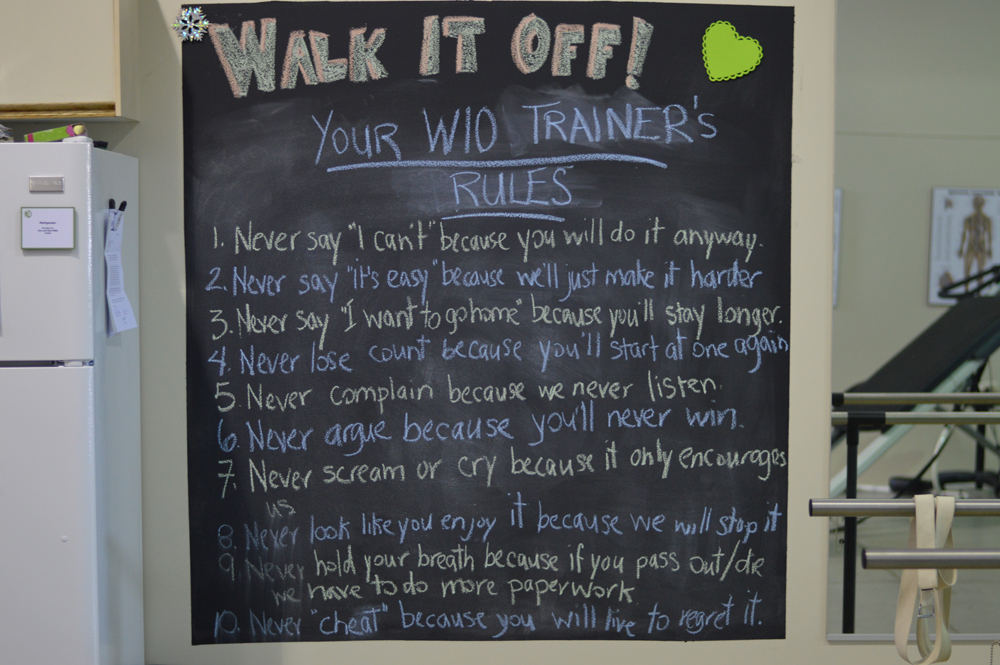 WALK IT OFF!
YOUR WIO TRAINER'S
RULES
1. Never say "I can't" because you will do it anyway.
2. Never say "it's easy" because we'll just make it harder
3. Never say "I want to go home" because you'll stay longer.
4. Never lose count because you'll start at one again
5. Never complain because we never listen.
6. Never argue because you'll never win.
7. Never scream or cry because it only encourages
us
8. Never look like you enjoy it because we will stop it
9. Never hold your breath because if you pass out/die
we have to do more paperwork
10. Never "cheat" because you will live to regret it.